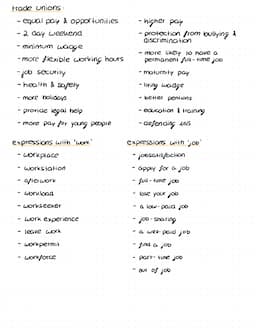 trade unions:
- equal pay & opportunities
- 2 day weekend
- minimum wage
- more flexible working hours
- job security
- health & safety
- more holidays
- provide legal help
- more pay for young people
- higher pay
- protection from bullying & discrimination
- more likely to have a
permanent full-time job
- maternity pay
- living wage
- better pensions
- education & training
- defending
expressions with 'work'
- workplace
- workstation
- afterwork
- workload
- workseeker
- work experience
- leave work
- workpermit
- workforce
expressions with 'job'
- jobsatisfaction
- apply for a job
- full-time job
- lose your job
- a low-paid job
- job-sharing
- a well-paid job
- find a job
- part-time job
- out of job